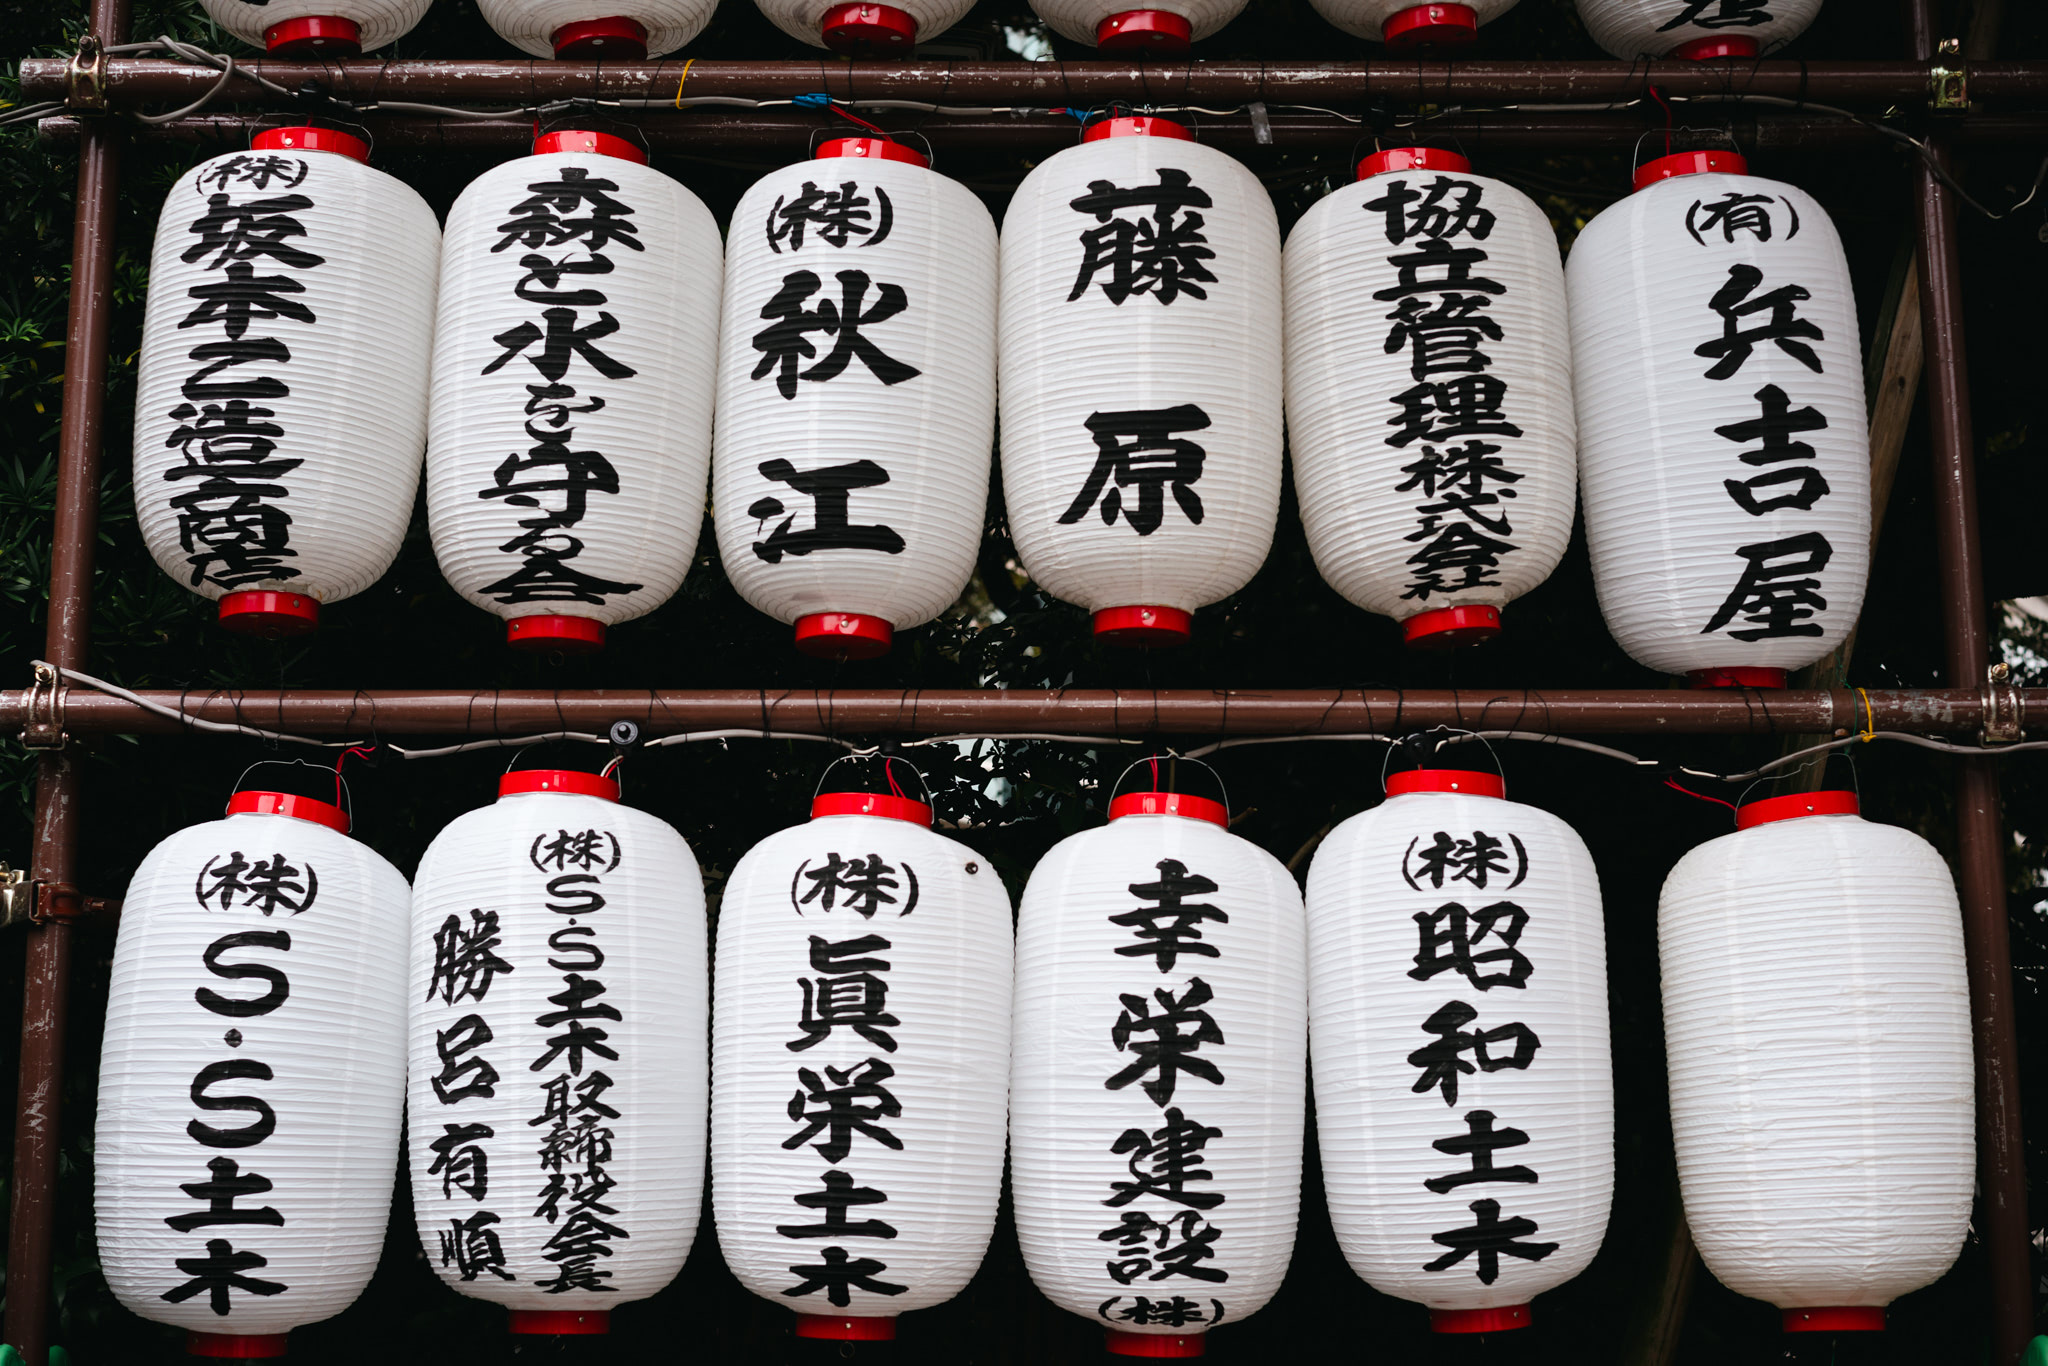 店
(株)坂本乙造商店
森と水を守る会
(株)秋江
藤原
協立管理株式会社
(有)兵吉屋
(株)S・S土木
(株)S・S土木取締役会長
勝呂有順
(株)眞栄土木
幸栄建設(株)
(株)昭和土木